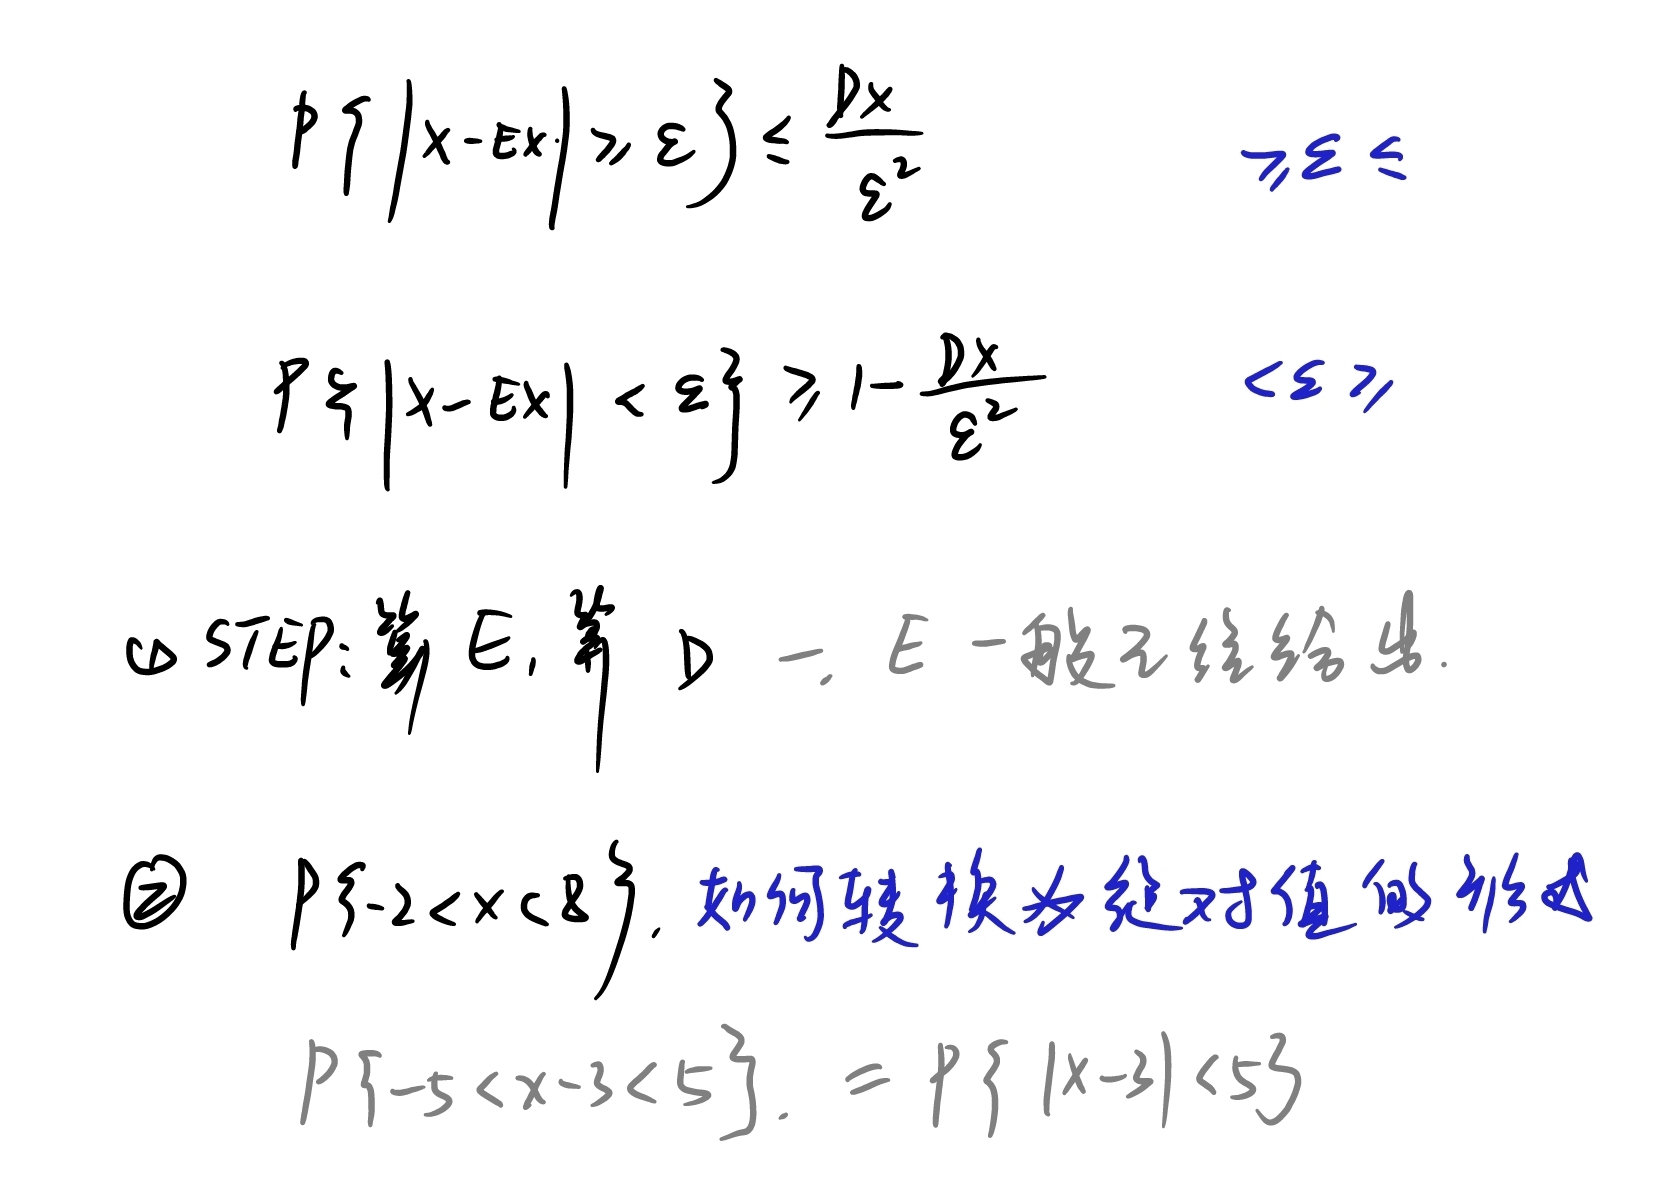 P{|X-EX|≥ε}≤DX/ε² ≥ε≤
P{|X-EX|<ε}≥1-DX/ε² <ε≥
① STEP:算E,算D —. E一般已经给出.
② P{-2<X<8}. 如何转换为绝对值的形式
P{-5<X-3<5}. =P{|X-3|<5}